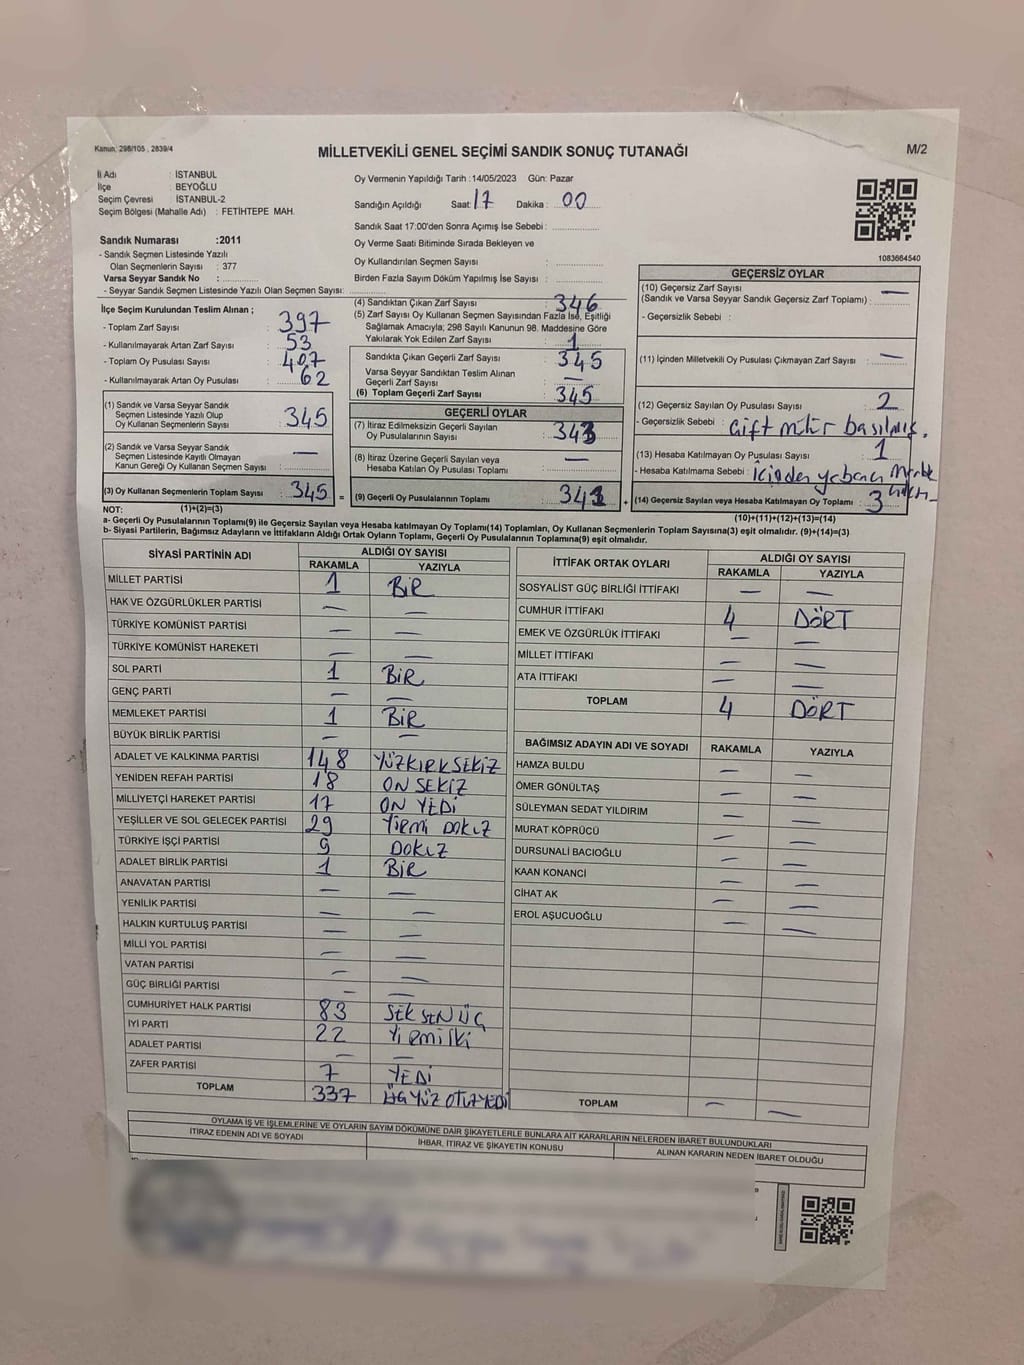 Kanun, 298/105 , 2839/4
MİLLETVEKİLİ GENEL SEÇİMİ SANDIK SONUÇ TUTANAĞI
M/2
İl Adı : İSTANBUL
İlçe : BEYOĞLU
Seçim Çevresi : İSTANBUL-2
Seçim Bölgesi (Mahalle Adı) : FETİHTEPE MAH.
Oy Vermenin Yapıldığı Tarih :14/05/2023 Gün: Pazar
Sandığın Açıldığı Saat: 17 Dakika : 00
Sandık Saat 17:00'den Sonra Açımış İse Sebebi :
Oy Verme Saati Bitiminde Sırada Bekleyen ve
Oy Kullandırılan Seçmen Sayısı :
Birden Fazla Sayım Döküm Yapılmış İse Sayısı :
1083664540
Sandık Numarası :2011
- Sandık Seçmen Listesinde Yazılı
Olan Seçmenlerin Sayısı : 377
Varsa Seyyar Sandık No :
- Seyyar Sandık Seçmen Listesinde Yazılı Olan Seçmen Sayısı:
İlçe Seçim Kurulundan Teslim Alınan ;
- Toplam Zarf Sayısı : 397
- Kullanılmayarak Artan Zarf Sayısı : 53
- Toplam Oy Pusulası Sayısı : 407
- Kullanılmayarak Artan Oy Pusulası : 62
(1) Sandık ve Varsa Seyyar Sandık
Seçmen Listesinde Yazılı Olup
Oy Kullanan Seçmenlerin Sayısı : 345
(2) Sandık ve Varsa Seyyar Sandık
Seçmen Listesinde Kayıtlı Olmayan
Kanun Gereği Oy Kullanan Seçmen Sayısı : —
(3) Oy Kullanan Seçmenlerin Toplam Sayısı : 345 =
(4) Sandıktan Çıkan Zarf Sayısı : 346
(5) Zarf Sayısı Oy Kullanan Seçmen Sayısından Fazla İse, Eşitliği
Sağlamak Amacıyla; 298 Sayılı Kanunun 98. Maddesine Göre
Yakılarak Yok Edilen Zarf Sayısı : 1
Sandıkta Çıkan Geçerli Zarf Sayısı : 345
Varsa Seyyar Sandıktan Teslim Alınan
Geçerli Zarf Sayısı : —
(6) Toplam Geçerli Zarf Sayısı : 345
GEÇERLİ OYLAR
(7) İtiraz Edilmeksizin Geçerli Sayılan
Oy Pusulalarının Sayısı : 343
(8) İtiraz Üzerine Geçerli Sayılan veya
Hesaba Katılan Oy Pusulası Toplamı : —
(9) Gerekli Oy Pusulalarının Toplamı : +
GEÇERSİZ OYLAR
(10) Geçersiz Zarf Sayısı —
(Sandık ve Varsa Seyyar Sandık Geçersiz Zarf Toplamı) :
- Geçersizlik Sebebi :
(11) İçinden Milletvekili Oy Pusulası Çıkmayan Zarf Sayısı : —
(12) Geçersiz Sayılan Oy Pusulası Sayısı : 2
- Geçersizlik Sebebi : Çift mühür basılmış.
(13) Hesaba Katılmayan Oy Pusulası Sayısı : 1
- Hesaba Katılmama Sebebi : İçinden yabancı
(14) Geçersiz Sayılan veya Hesaba Katılmayan Oy Toplamı : 3
NOT: (1)+(2)=(3)
(10)+(11)+(12)+(13)=(14)
a- Geçerli Oy Pusulasının Toplamı(9) ile Geçersiz Sayılan veya Hesaba katılmayan Oy Toplamı(14) Toplamları, Oy Kullanan Seçmenlerin Toplam Sayısına(3) eşit olmalıdır. (9)+(14)=(3)
b- Siyasi Partilerin, Bağımsız Adayların ve İttifakların Aldığı Ortak Oyların Toplamı, Geçerli Oy Pusulalarının Toplamına(9) eşit olmalıdır.
SİYASİ PARTİNİN ADI ALDIĞI OY SAYISI
RAKAMLA YAZIYLA
MİLLET PARTİSİ 1 BİR
HAK VE ÖZGÜRLÜKLER PARTİSİ — —
TÜRKİYE KOMÜNİST PARTİSİ — —
TÜRKİYE KOMÜNİST HAREKETİ — —
SOL PARTİ 1 BİR
GENÇ PARTİ — —
MEMLEKET PARTİSİ 1 BİR
BÜYÜK BİRLİK PARTİSİ — —
ADALET VE KALKINMA PARTİSİ 148 YÜZKIRKSEKİZ
YENİDEN REFAH PARTİSİ 18 ON SEKİZ
MİLLİYETÇİ HAREKET PARTİSİ 17 ON YEDİ
YEŞİLLER VE SOL GELECEK PARTİSİ 29 Yirmi DOKUZ
TÜRKİYE İŞÇİ PARTİSİ 9 DOKUZ
ADALET BİRLİK PARTİSİ 1 BİR
ANAVATAN PARTİSİ — —
YENİLİK PARTİSİ — —
HALKIN KURTULUŞ PARTİSİ — —
MİLLİ YOL PARTİSİ — —
VATAN PARTİSİ — —
GÜÇ BİRLİĞİ PARTİSİ — —
CUMHURİYET HALK PARTİSİ 83 SEKSEN ÜÇ
İYİ PARTİ 22 Yirmi İki
ADALET PARTİSİ — —
ZAFER PARTİSİ 7 YEDİ
TOPLAM 337 ÜÇ YÜZ OTUZYEDİ
İTTİFAK ORTAK OYLARI ALDIĞI OY SAYISI
RAKAMLA YAZIYLA
SOSYALİST GÜÇ BİRLİĞİ İTTİFAKI — —
CUMHUR İTTİFAKI 4 DÖRT
EMEK VE ÖZGÜRLÜK İTTİFAKI — —
MİLLET İTTİFAKI — —
ATA İTTİFAKI — —
TOPLAM 4 DÖRT
BAĞIMSIZ ADAYIN ADI VE SOYADI RAKAMLA YAZIYLA
HAMZA BULDU — —
ÖMER GÖNÜLTAŞ — —
SÜLEYMAN SEDAT YILDIRIM — —
MURAT KÖPRÜCÜ — —
DURSUNALİ BACIOĞLU — —
KAAN KONANCİ — —
CİHAT AK — —
EROL AŞUCUOĞLU — —
TOPLAM — —
OYLAMA İŞ VE İŞLEMLERİNE VE OYLARIN SAYIM DÖKÜMÜNE DAİR ŞİKAYETLERLE BUNLARA AİT KARARLARIN NELERDEN İBARET BULUNDUKLARI
İTİRAZ EDENİN ADI VE SOYADI İHBAR, İTİRAZ VE ŞİKAYETİN KONUSU ALINAN KARARIN NEDEN İBARET OLDUĞU